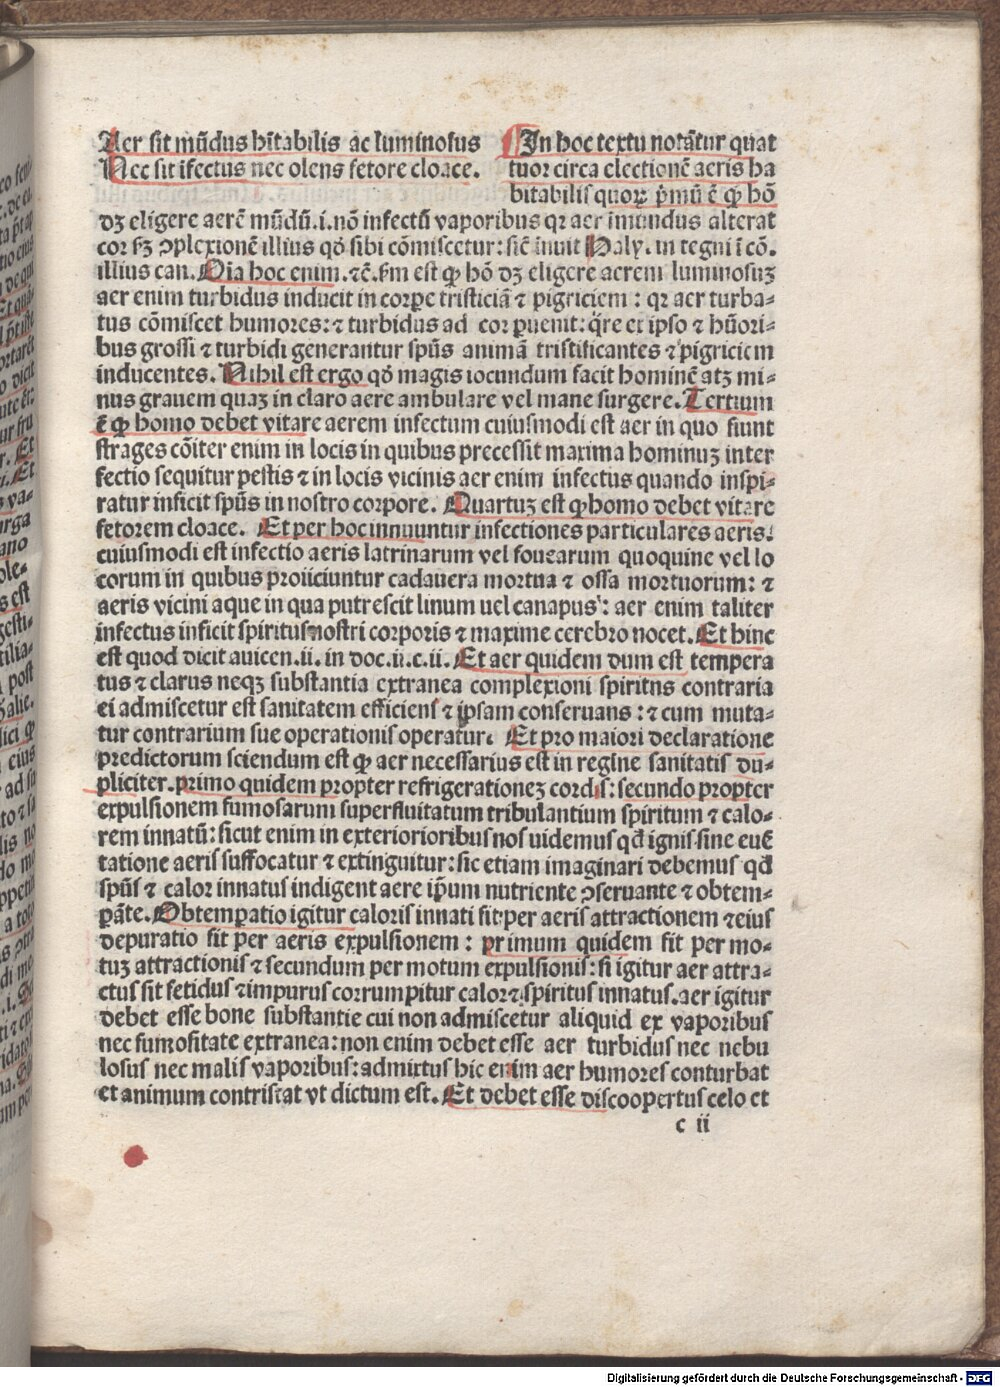 Aer sit mūdus hītabilis ac luminosus
Nec sit īfectus nec olens fetore cloace.
¶In hoc textu notātur quat
tuor circa electionē aeris ha
bitabilis quoꝝ p̄mū ē ꝙ hō
dꝫ eligere aerē mūdū.i.nō infectū vaporibus qꝛ aer īmundus alterat
cor ⁊ ꝯplexionē illius qđ sibi cōmiscetur: sic̄ īnuit Haly. in tegni ī cō.
illius can. Oīa hoc enim.⁊c̄. Sm est ꝙ hō dꝫ eligere aerem luminosuꝫ
aer enim turbidus inducit in corꝑe tristiciā ⁊ pigriciem: qꝛ aer turba⸗
tus cōmiscet humores: ⁊ turbidus ad cor ꝑuenit: q̄re ex ipso ⁊ hūori⸗
bus grossi ⁊ turbidi generantur spūs animā tristificantes ⁊ pigriciem
inducentes. Nihil est ergo qđ magis iocundum facit hominē atꝫ mi⸗
nus grauem quaꝫ in claro aere ambulare vel mane surgere. Tertium
ē ꝙ homo debet vitare aerem infectum cuiusmodi est aer in quo fiunt
strages cōiter enim in locis in quibus precessit maxima hominuꝫ inter
fectio sequitur pestis ⁊ in locis vicinis aer enim infectus quando inspi⸗
ratur inficit spūs in nostro corpore. Quartuꝫ est ꝙ homo debet vitare
fetorem cloace. Et per hoc innuuntur infectiones particulares aeris:
cuiusmodi est infectio aeris latrinarum vel fouearum quoquine vel lo
corum in quibus proiiciuntur cadauera mortua ⁊ ossa mortuorum: ⁊
aeris vicini aque in qua putrescit linum uel canapus: aer enim taliter
infectus inficit spiritus nostri corporis ⁊ maxime cerebro nocet. Et hinc
est quod dicit auicen.ii. in doc.ii.c.ii. Et aer quidem dum est tempera
tus ⁊ clarus neqꝫ substantia extranea complexioni spiritns contraria
ei admiscetur est sanitatem efficiens ⁊ ipsam conseruans: ⁊ cum muta⸗
tur contrarium sue operationis operatur. Et pro maiori declaratione
predictorum sciendum est ꝙ aer necessarius est in regīne sanitatis du⸗
pliciter. primo quidem propter refrigerationeꝫ cordis: secundo propter
expulsionem fumosarum superfluitatum tribulantium spiritum ⁊ calo⸗
rem innatū: sicut enim in exteriorioribus nos uidemus qđ ignis sine euē
tatione aeris suffocatur ⁊ extinguitur: sic etiam imaginari debemus qđ
spūs ⁊ calor innatus indigent aere ip̄um nutriente ꝯseruante ⁊ obtem⸗
ꝑāte. Obtemꝑatio igitur caloris innati fit per aeris attractionem ⁊ eius
depuratio fit per aeris expulsionem: primum quidem fit per mo⸗
tuꝫ attractionis ⁊ secundum per motum expulsionis: si igitur aer attra⸗
ctus sit fetidus ⁊ impurus corrumpitur calor ⁊ spiritus innatus. aer igitur
debet esse bone substantie cui non admiscetur aliquid ex vaporibus
nec fumositate extranea: non enim debet esse aer turbidus nec nebu
losus nec malis vaporibus: admixtus hic enim aer humores conturbat
et animum contristat vt dictum est. Et debet esse discoopertus celo et
c ii
Digitalisierung gefördert durch die Deutsche Forschungsgemeinschaft - DFG